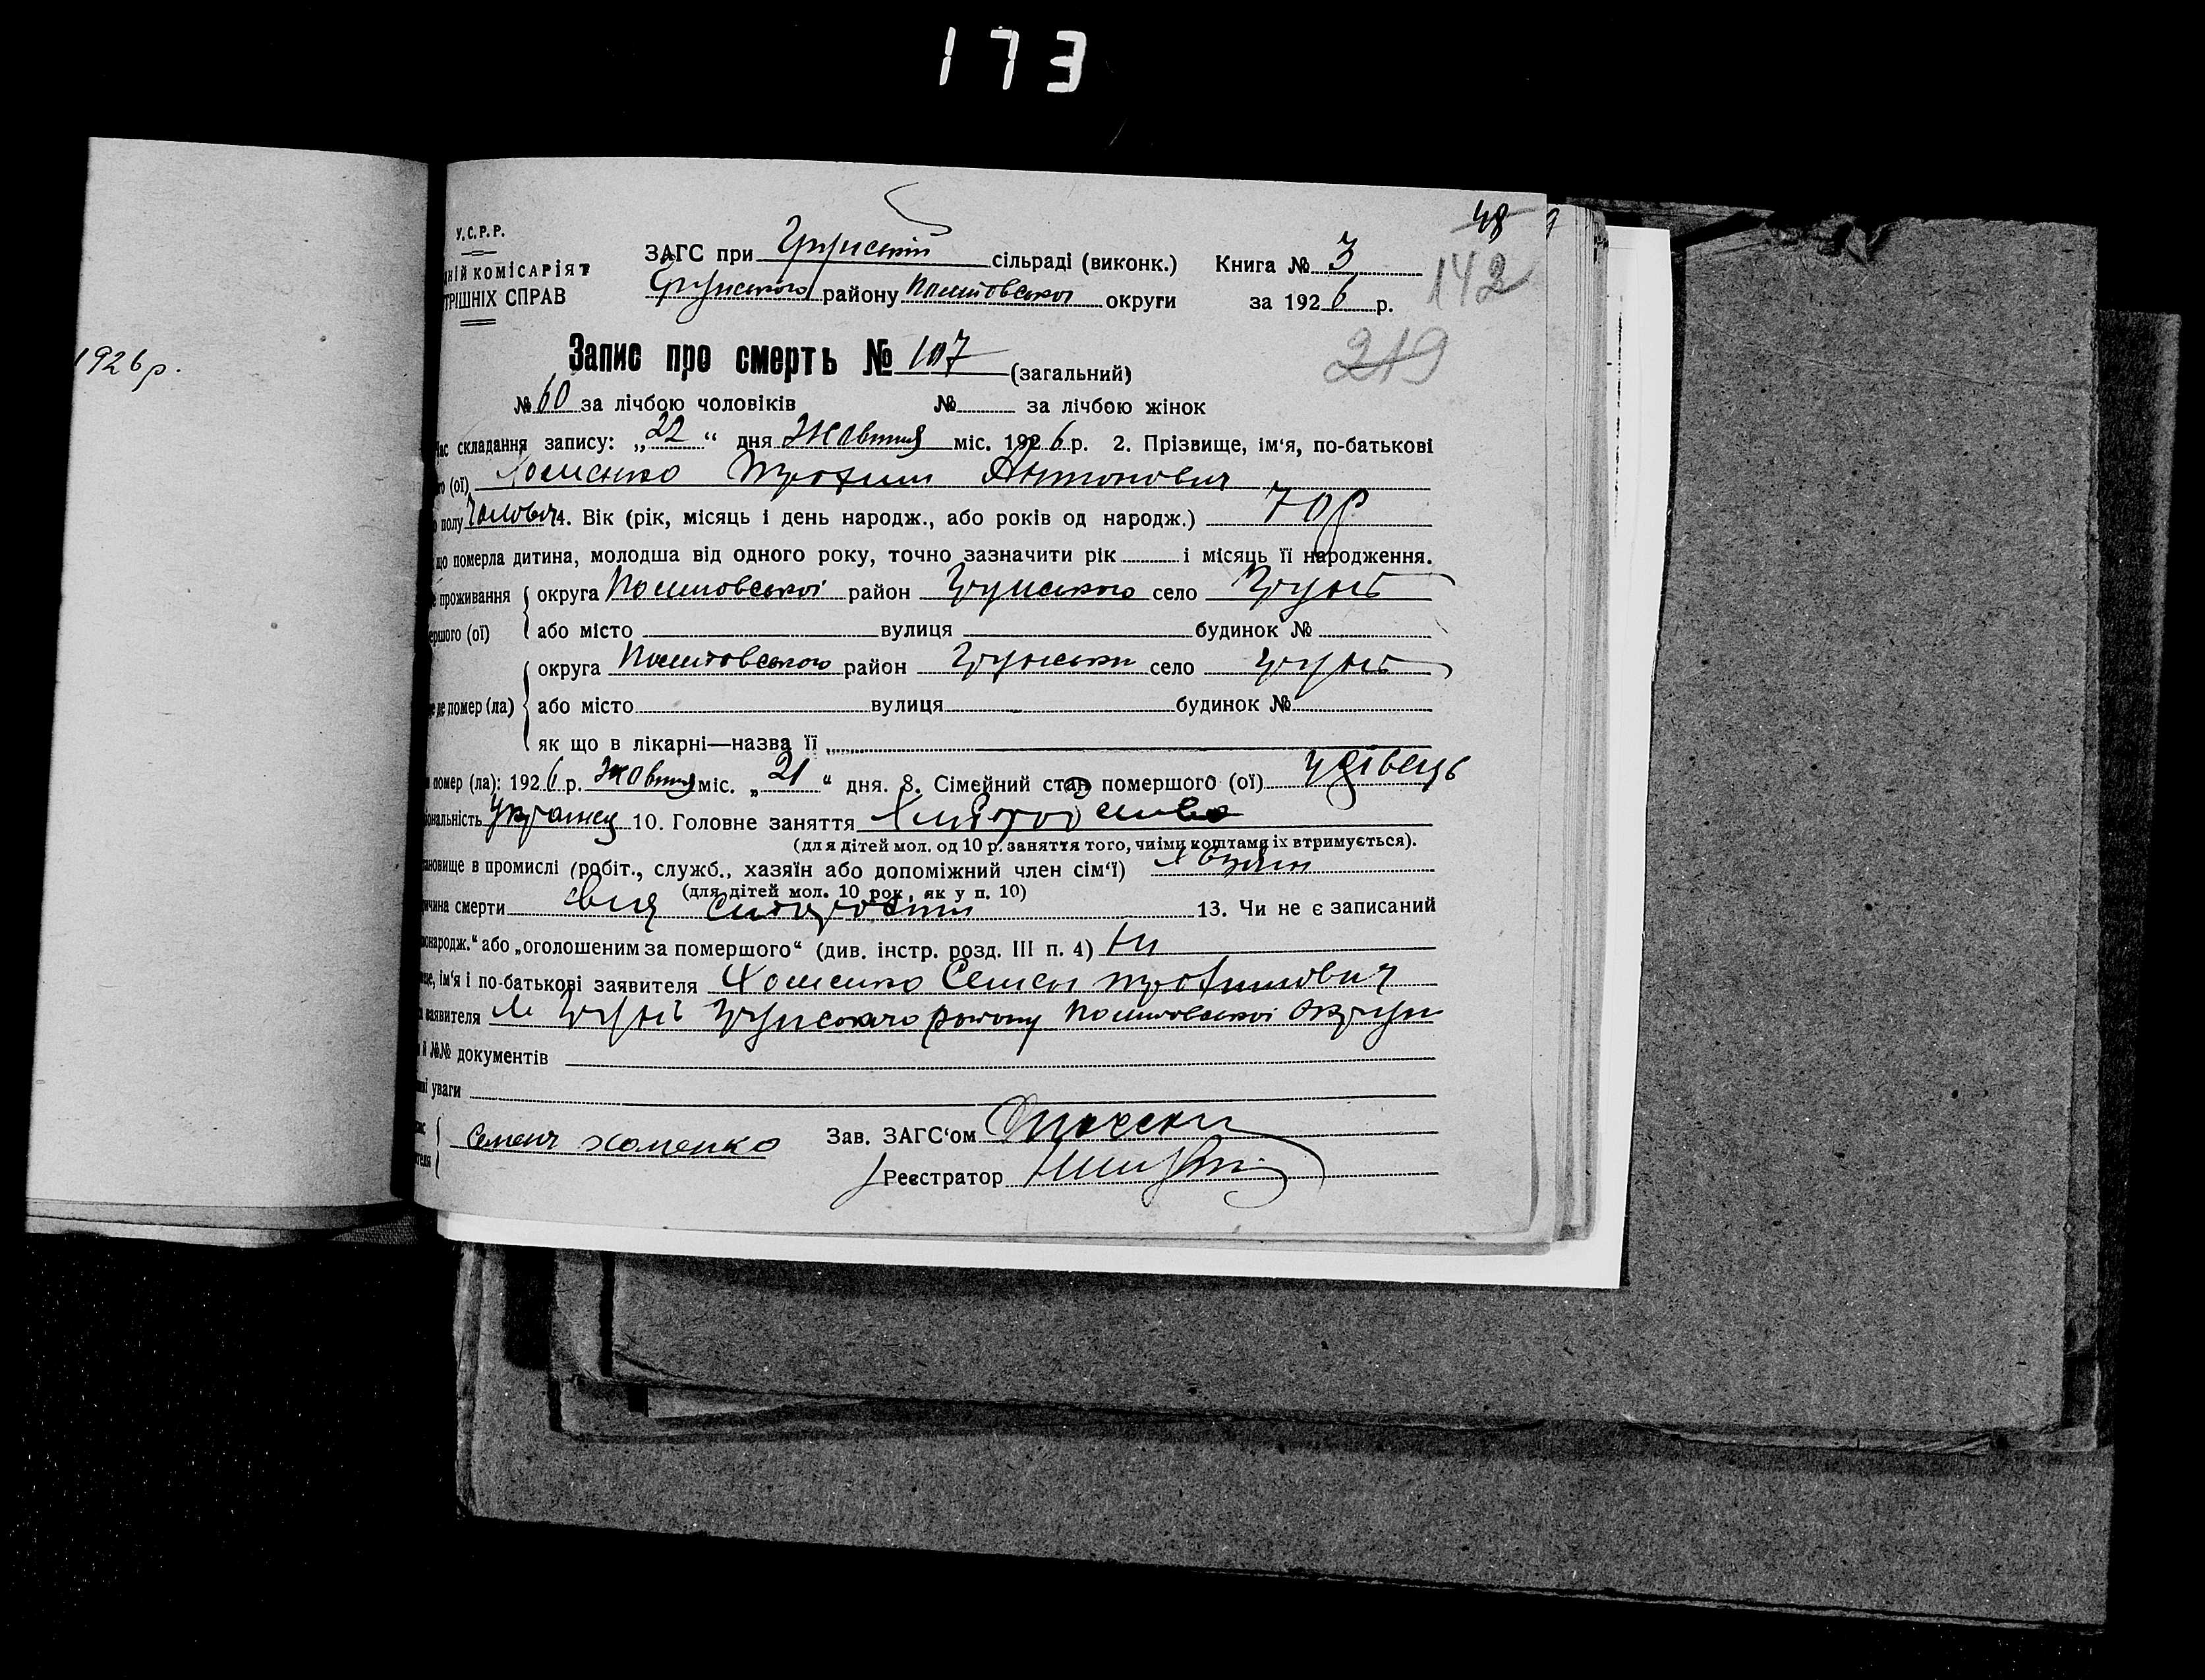 173
48
У.С.Р.Р.
НІЙ КОМІСАРІЯТ
ТРІШНІХ СПРАВ
ЗАГС при Грунській сільраді (виконк.) Книга № 3
142
Грунського району Полтовської округи за 1926 р.
1926 р.
Запис про смерть № 107 (загальний)
219
№ 60 за лічбою чоловіків № за лічбою жінок
Час складання запису: „22“ дня Жовтня міс. 1926 р. 2. Прізвище, ім‘я, по-батькові
го (ої) Хоменко Трохим Антонович
полу Чолович 4. Вік (рік, місяць і день народж., або років од народж.) 70 р
що померла дитина, молодша від одного року, точно зазначити рік і місяць її народження.
проживання округа Полтовської район Грунського село Грунь
ершого (ої) або місто вулиця будинок №
округа Полтовського район Грунськи село Грунь
де помер (ла) або місто вулиця будинок №
як що в лікарні—назва її
помер (ла): 1926 р. Жовтня міс. „21“ дня. 8. Сімейний стан помершого (ої) удівець
ональність Украінец 10. Головне заняття Хліборобство
(для дітей мол. од 10 р. заняття того, чиїми коштами їх втримується).
ановище в промислі (робіт., служб., хазяїн або допоміжний член сім‘ї) Хазяін
(для дітей мол. 10 рок., як у п. 10)
ичина смерти від старости 13. Чи не є записаний
народж.“ або „оголошеним за помершого“ (див. інстр. розд. III п. 4) Ни
ще, ім‘я і по-батькові заявителя Хоменко Семен Трохимович
заявителя м Грунь Грунського району Полтовської округи
й №№ документів
уваги
Семен хоменко Зав. ЗАГС‘ом
Реєстратор